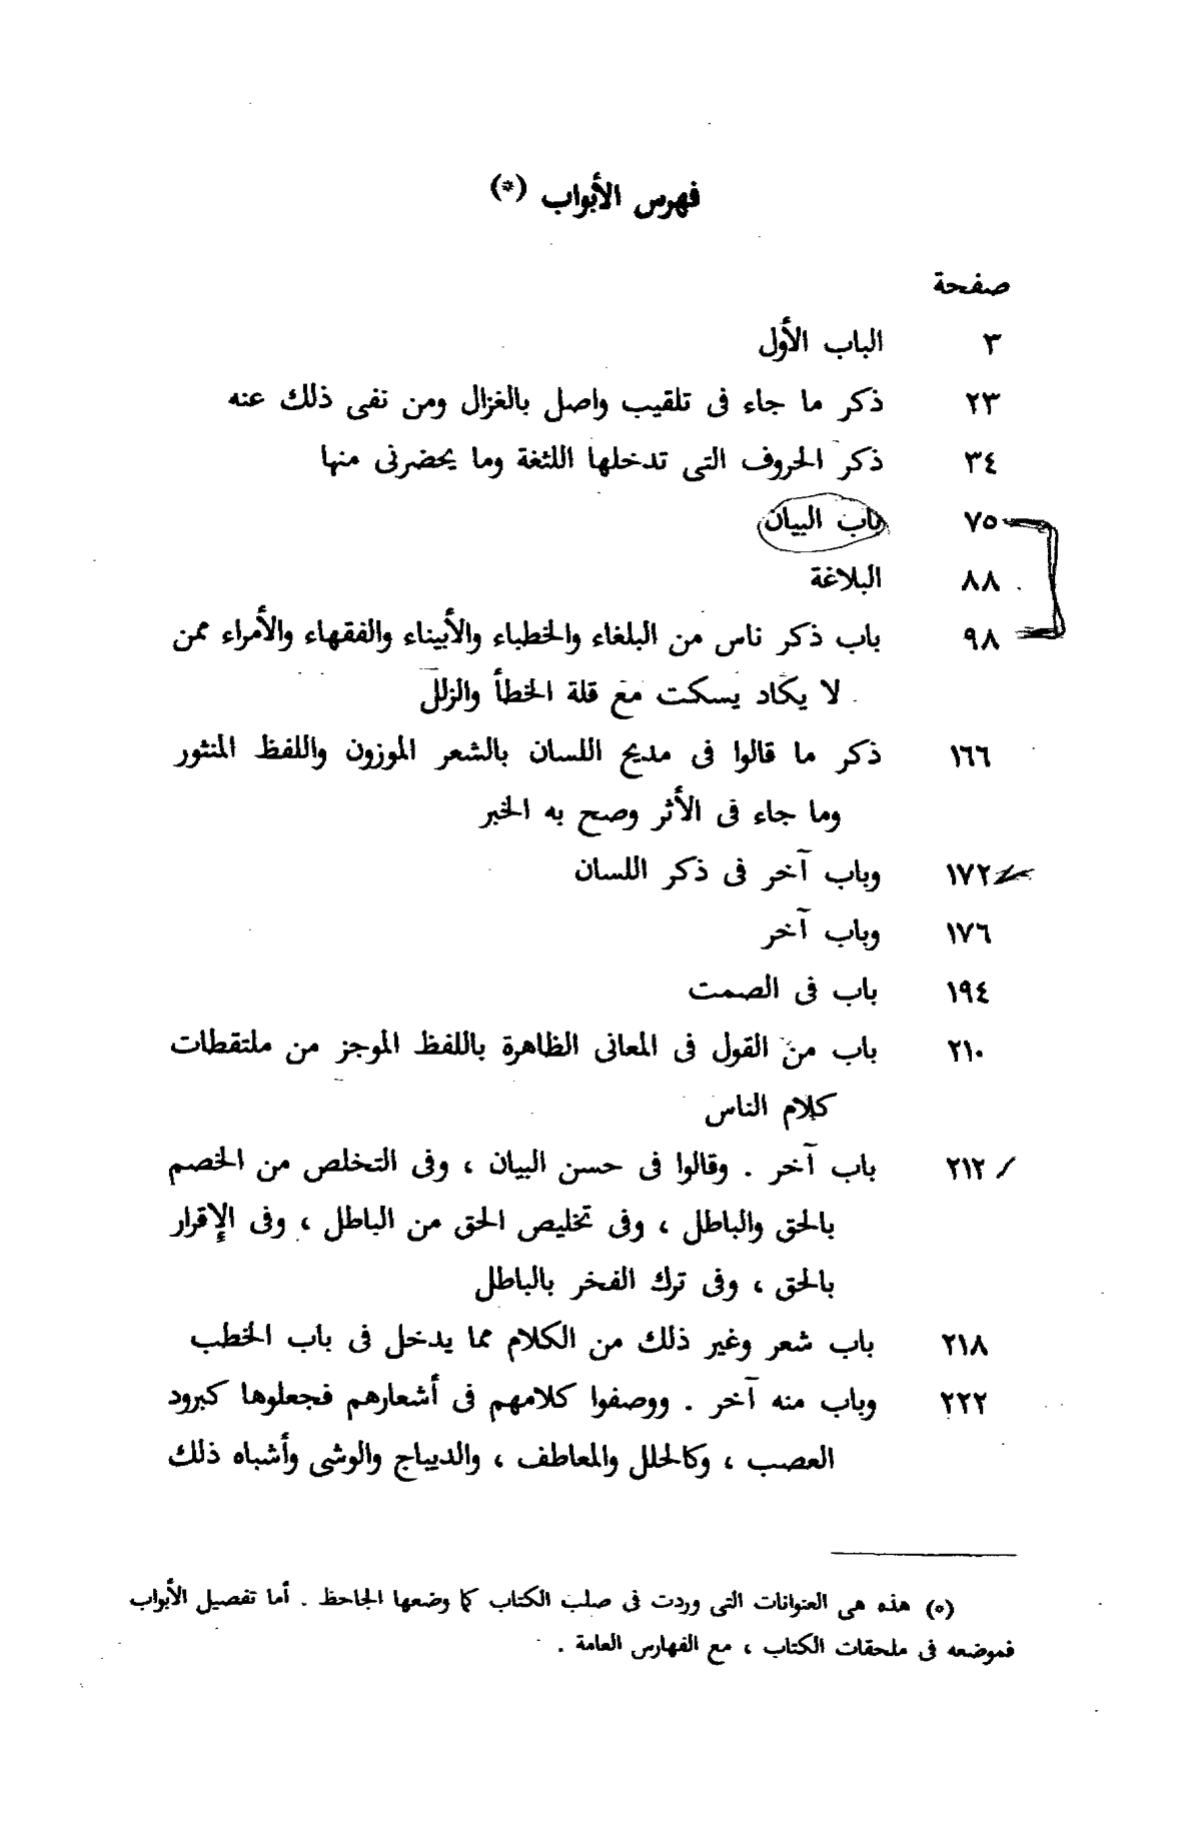 فهرس الأبواب (*)
صفحة
٣ الباب الأول
٢٣ ذكر ما جاء فى تلقيب واصل بالغزال ومن نفى ذلك عنه
٣٤ ذكر الحروف التى تدخلها اللثغة وما يحضرنى منها
٧٥ باب البيان
٨٨ البلاغة
٩٨ باب ذكر ناس من البلغاء والخطباء والأبيناء والفقهاء والأمراء ممن
لا يكاد يسكت مع قلة الخطأ والزلل
١٦٦ ذكر ما قالوا فى مديح اللسان بالشعر الموزون واللفظ المنثور
وما جاء فى الأثر وصح به الخبر
١٧٢ وباب آخر فى ذكر اللسان
١٧٦ وباب آخر
١٩٤ باب فى الصمت
٢١٠ باب من القول فى المعانى الظاهرة باللفظ الموجز من ملتقطات
كلام الناس
٢١٢ باب آخر . وقالوا فى حسن البيان ، وفى التخلص من الخصم
بالحق والباطل ، وفى تخليص الحق من الباطل ، وفى الإقرار
بالحق ، وفى ترك الفخر بالباطل
٢١٨ باب شعر وغير ذلك من الكلام مما يدخل فى باب الخطب
٢٢٢ وباب منه آخر . ووصفوا كلامهم فى أشعارهم فجعلوها كبرود
العصب ، وكالحلل والمعاطف ، والديباج والوشى وأشباه ذلك
(*) هذه هى العنوانات التى وردت فى صلب الكتاب كما وضعها الجاحظ . أما تفصيل الأبواب
فموضعه فى ملحقات الكتاب ، مع الفهارس العامة .